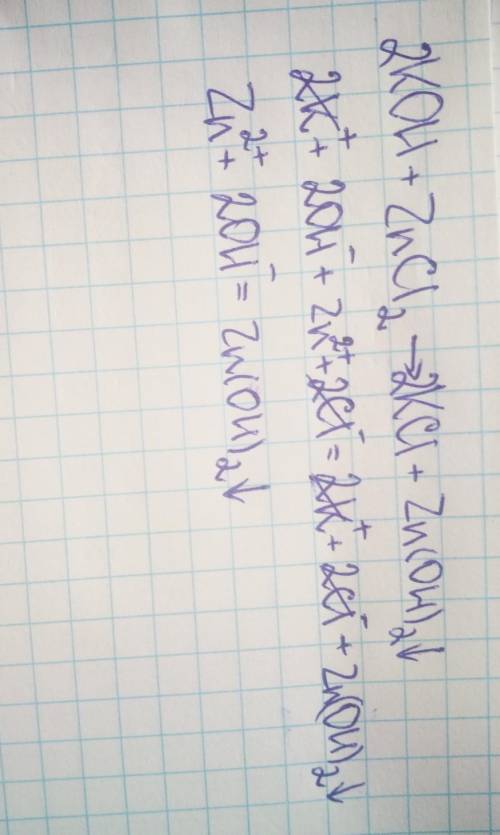 2KOH + ZnCl₂ → 2KCl + Zn(OH)₂↓
2K⁺ + 2OH⁻ + Zn²⁺ + 2Cl⁻ = 2K⁺ + 2Cl⁻ + Zn(OH)₂↓
Zn²⁺ + 2OH⁻ = Zn(OH)₂↓